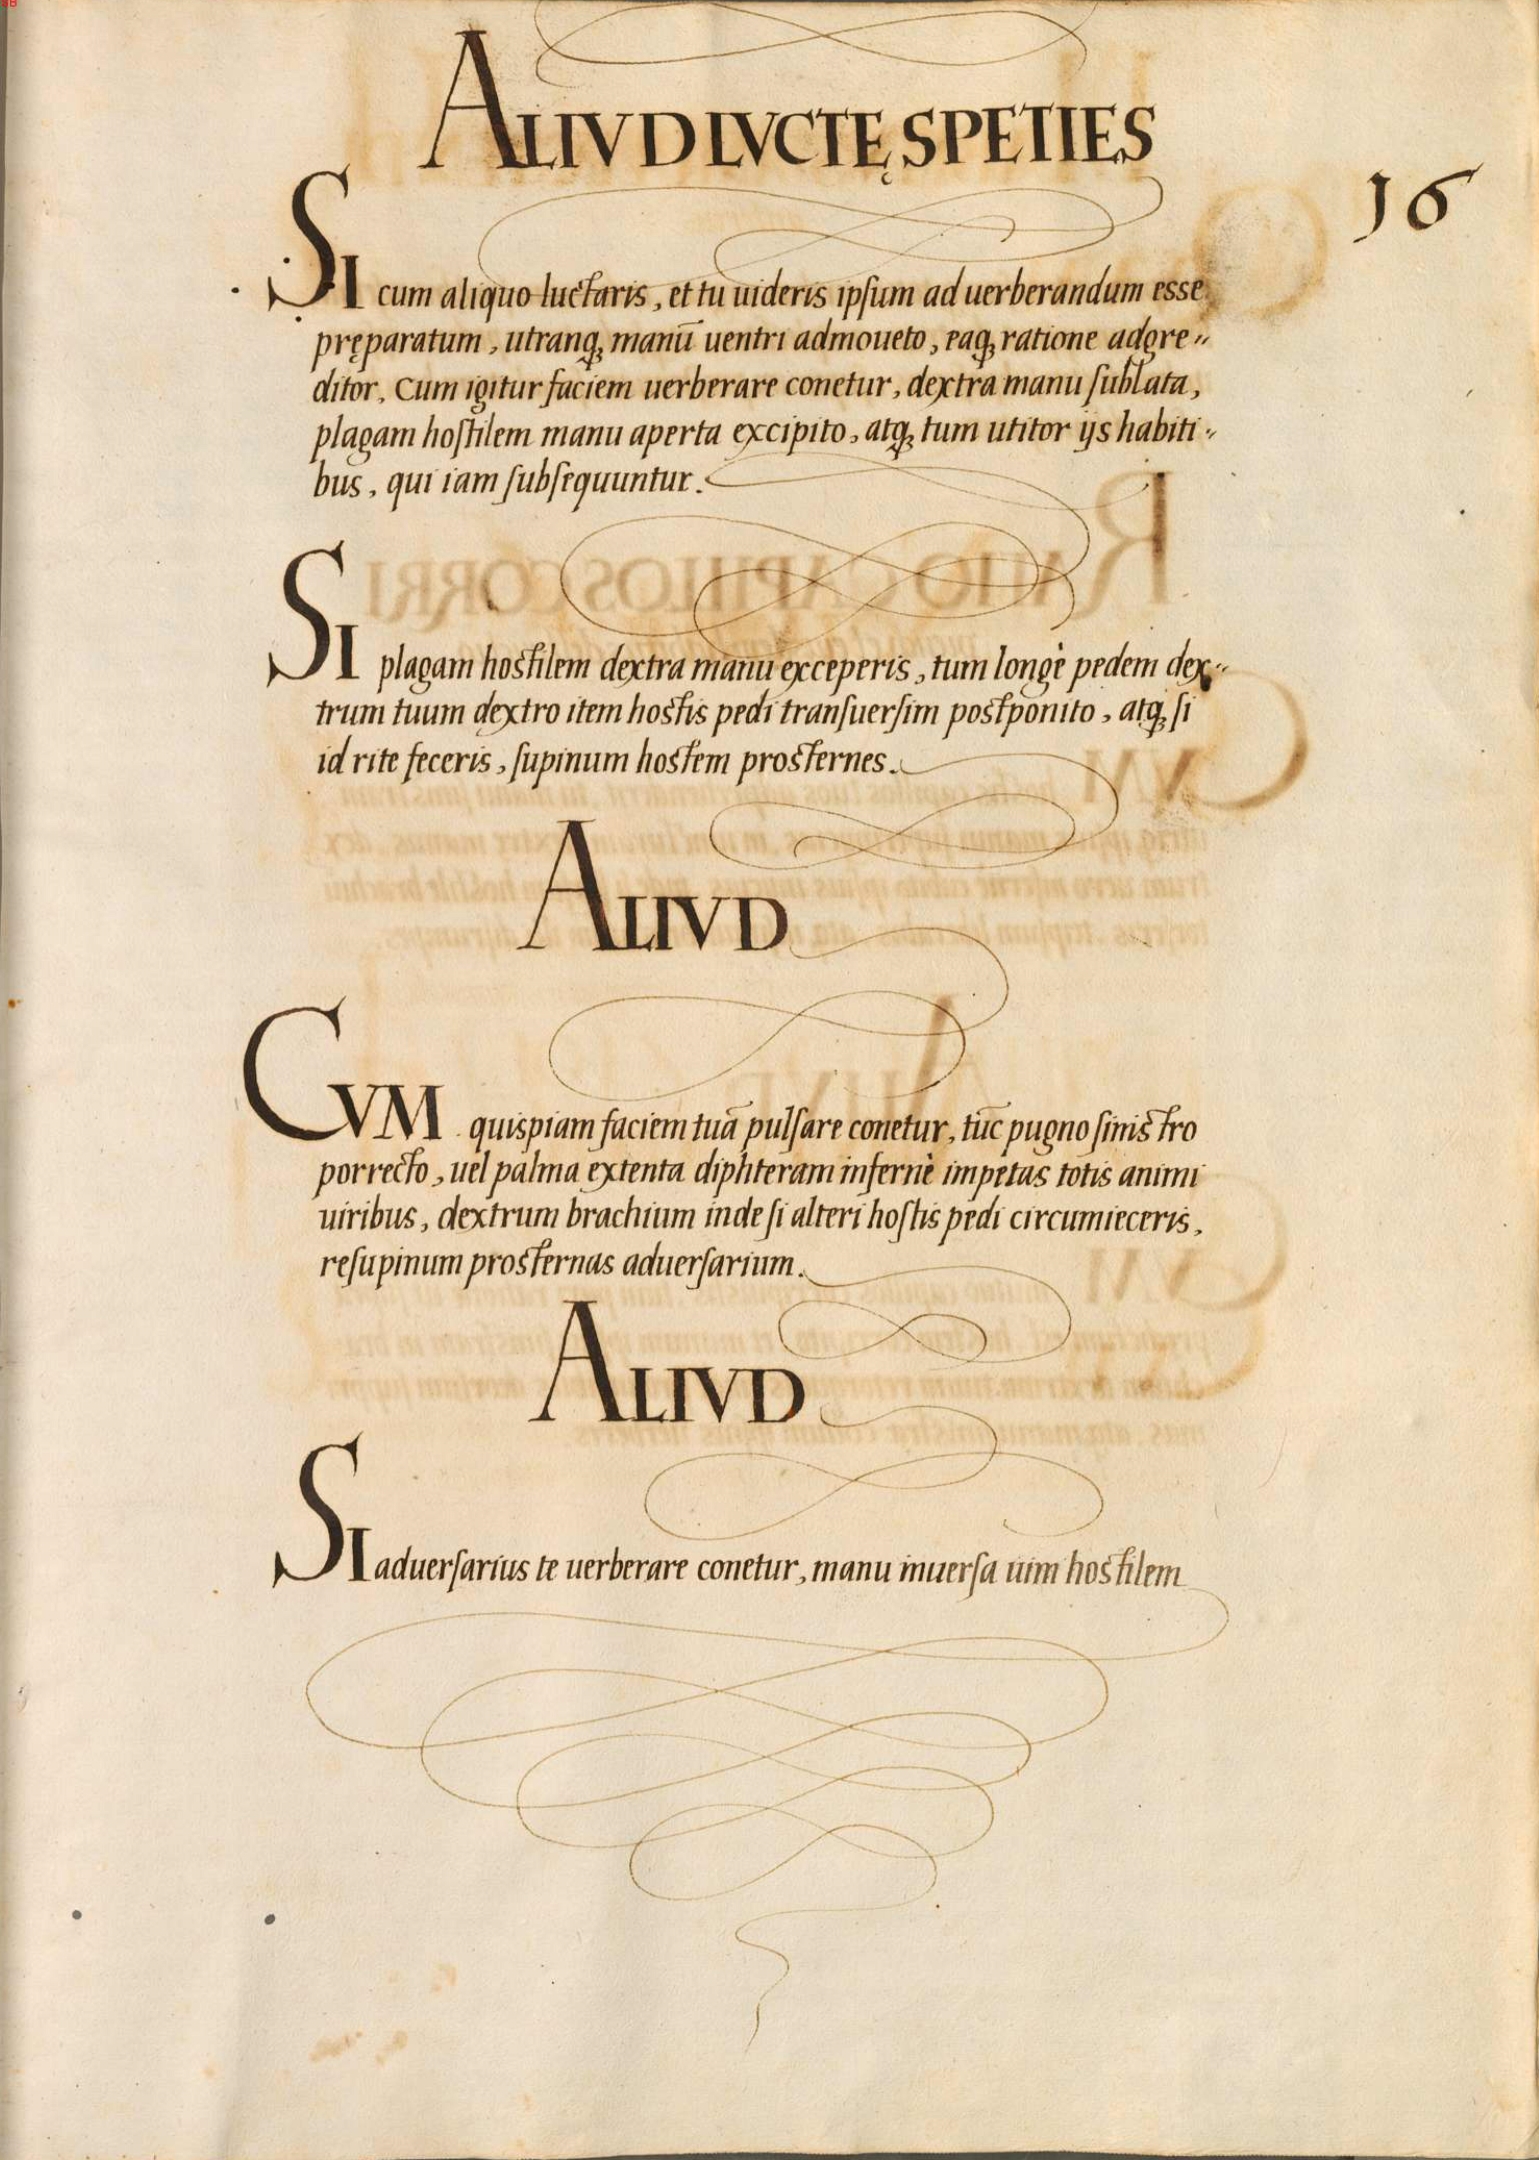 ALIVD LVCTĘ SPETIES
16
SI cum aliquo luctaris, et tu uideris ipsum ad uerberandum esse
pręparatum, utranq; manū uentri admoueto, eaq; ratione adgre„
ditor, Cum igitur faciem uerberare conetur, dextra manu sublata,
plagam hostilem manu aperta excipito, atq; tum utitor ijs habiti„
bus, qui iam subsequuntur.
SI plagam hostilem dextra manu exceperis, tum longè pedem dex„
trum tuum dextro item hostis pedi transuersim postponito, atq; si
id rite feceris, supinum hostem prosternes.
ALIVD
CVM quispiam faciem tuā pulsare conetur, tūc pugno sinistro
porrecto, uel palma extenta diphteram infernè impetas totis animi
uiribus, dextrum brachium inde si alteri hostis pedi circumieceris,
resupinum prosternas aduersarium.
ALIVD
SI aduersarius te uerberare conetur, manu inuersa uim hostilem